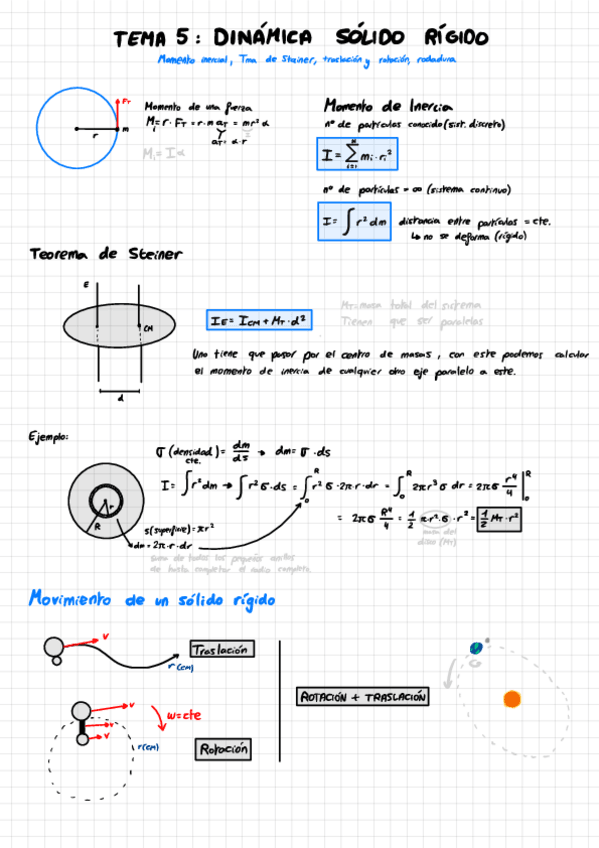 TEMA 5: DINÁMICA SÓLIDO RÍGIDO
Momento inercial, Tma de Steiner, traslación y rotación, rodadura
F_T
r
m
Momento de una fuerza
M_i = r · F_T = r · m a_T = m r² α
a_T = α · r
M_i = I α
Momento de Inercia
nº de partículas conocido (sist. discreto)
I = Σ m_i · r_i²
i=1
nº de partículas = ∞ (sistema continuo)
I = ∫ r² dm
distancia entre partículas = cte.
↳ no se deforma (rígido)
Teorema de Steiner
E
CM
d
I_E = I_CM + M_T · d²
M_T = masa total del sistema
Tienen que ser paralelas
Uno tiene que pasar por el centro de masas, con este podemos calcular
el momento de inercia de cualquier otro eje paralelo a este.
Ejemplo:
σ (densidad) = dm/ds → dm = σ · ds
cte.
I = ∫ r² dm → ∫ r² σ · ds = ∫₀ᴿ r² σ · 2π · r · dr = ∫₀ᴿ 2π r³ σ dr = 2πσ r⁴/4 |₀ᴿ
= 2πσ R⁴/4 = 1/2 π r² · σ · r² = 1/2 M_T · r²
masa del
disco (M_T)
r
R
S (superficie) = π r²
ds = 2π · r · dr
suma de todos los pequeños anillos
de hasta completar el radio completo.
Movimiento de un sólido rígido
v
r (CM)
Traslación
v
v
v
ω = cte
r (CM)
Rotación
ROTACIÓN + TRASLACIÓN